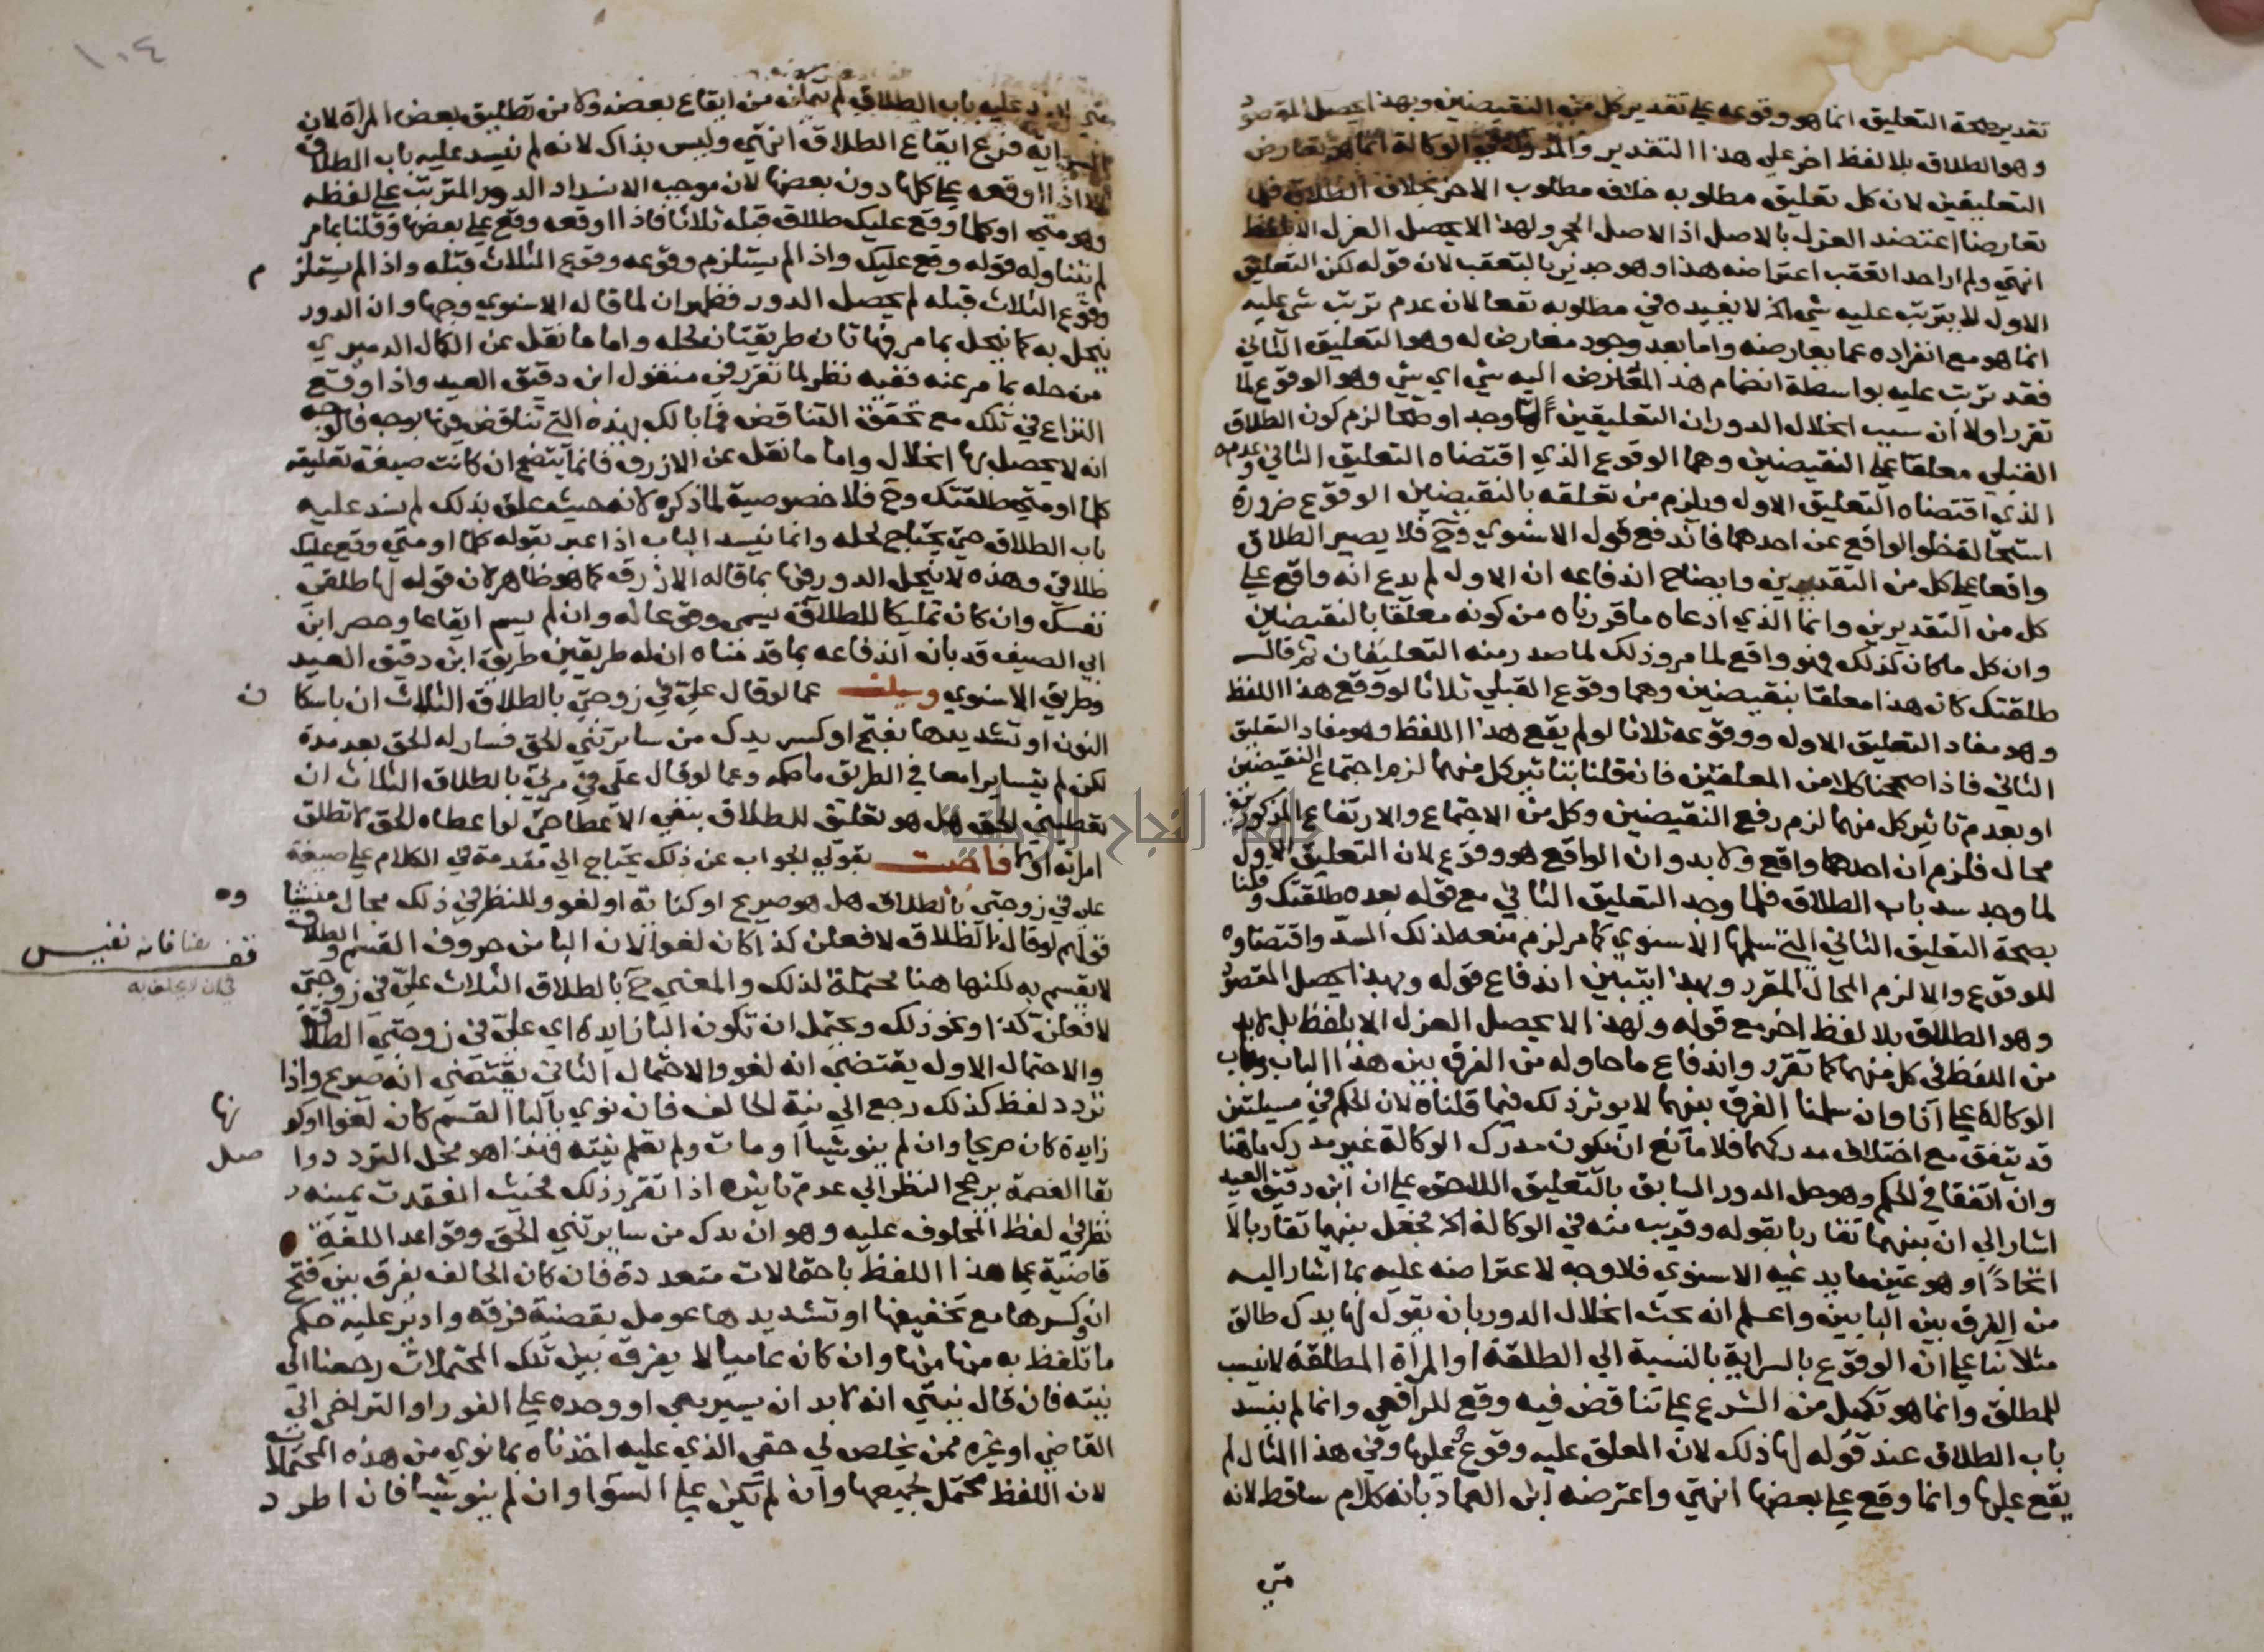 تقدير صحة التعليق انما هو وقوعه على تقدير كل من النقيضين وبهذا يحصل المقصود
وهو الطلاق بلا لفظ اخر على هذا التقدير والمدرك في الوكالة انما هو تعارض
التعليقين لان كل تعليق مطلوبه خلاف مطلوب الاخر بخلاف الطلاق فلما
تعارضا اعتضد العزل بالاصل اذ الاصل الحجر ولهذا لا يحصل العزل الا بلفظ
انتهى ولم ار احدا تعقب اعتراضه هذا وهو جدير بالتعقب لان قوله لكن التعليق
الاول لا يترتب عليه شي اذ لا يفيده في مطلوبه نفعا لان عدم ترتب شي عليه
انما هو مع انفراده عما يعارضه واما بعد وجود معارض له وهو التعليق الثاني
فقد ترتب عليه بواسطة انضمام هذا المعارض اليه شي اي شي وهو الوقوع لما
تقرر اولا ان سبب انحلال الدور ان التعليقين لما وجد او صحا لزم كون الطلاق
القبلي معلقا على النقيضين وهما الوقوع الذي اقتضاه التعليق الثاني وعدمه
الذي اقتضاه التعليق الاول ويلزم من تعلقه بالنقيضين الوقوع ضرورة
استحالة خلو الواقع عن احدهما فاندفع قول الاسنوي وح فلا يصير الطلاق
واقعا على كل من التقديرين وايضاح اندفاعه ان الاول لم يدع انه واقع على
كل من التقديرين وانما الذي ادعاه ما قررناه من كونه معلقا بالنقيضين
وان كل ما كان كذلك فهو واقع لما مر وذلك لما صدر منه التعليقان ثم قال
طلقتك كان هذا معلقا بنقيضين وهما وقوع القبلي ثلاثا لو وقع هذا اللفظ
وهو مفاد التعليق الاول ووقوعه ثلاثا لو لم يقع هذا اللفظ وهو مفاد التعليق
الثاني فاذا صححنا كلا من المعلقين فان قلنا بتاثير كل منهما لزم اجتماع النقيضين
او بعدم تاثير كل منهما لزم رفع النقيضين وكل من الاجتماع والارتفاع المذكورين
محال فلزم ان احدهما واقع ولا بد وان الواقع هو وقوع لان التعليق الاول
لما وجد سد باب الطلاق فلما وجد التعليق الثاني مع قوله بعده طلقتك وقلنا
بصحة التعليق الثاني التي سلمها الاسنوي كما مر لزم منعه لذلك السد واقتضاوه
للوقوع والا لزم المحال المقرر وبهذا يتبين اندفاع قوله وبهذا يحصل المقصود
وهو الطلاق بلا لفظ اخر مع قوله ولهذا لا يحصل العزل الا بلفظ بل لابد
من اللفظ في كل منهما كما تقرر واندفاع ما حاوله من الفرق بين هذا الباب وباب
الوكالة على انا وان سلمنا الفرق بينهما لا يوثر ذلك فيما قلناه لان الحكم في مسيلتين
قد يتفق مع اختلاف مدركهما فلا مانع ان يكون مدرك الوكالة غير مدرك ما هنا
وان اتفقا في الحكم وهو حل الدور السابق بالتعليق اللاحق على ان ابن دقيق العيد
اشار الى ان بينهما تقاربا بقوله وقريب منه في الوكالة الخ فجعل بينهما تقاربا لا
اتحادا وهو عين ما يدعيه الاسنوي فلا وجه لاعتراضه عليه بما اشار اليه
من الفرق بين البابين واعلم انه بحث انحلال الدور بان يقول لها يدك طالق
مثلا بنا على ان الوقوع بالسراية بالنسبة الى الطلقة او المراة المطلقة لا ينسب
للمطلق وانما هو تكميل من الشرع على تناقض فيه وقع للرافعي وانما لم ينسد
باب الطلاق عند قوله لها ذلك لان المعلق عليه وقوعه عليها وفي هذا المثال لم
يقع عليها وانما وقع على بعضها انتهى واعترضه ابن العماد بانه كلام ساقط لانه
متى
١٠٤
متى انسد عليه باب الطلاق لم يتمكن من ايقاع بعضه ولا من تطليق بعض المراة لان
السراية فرع ايقاع الطلاق انتهى وليس بذاك لانه لم ينسد عليه باب الطلاق
الا اذا اوقعه على كلها دون بعضها لان موجب الانسداد الدور المترتب على لفظه
وهو متى او كلما وقع عليك طلاق قبله ثلاثا فاذا اوقعه وقع على بعضها وقلنا بما مر
لم يتناوله قوله وقع عليك واذا لم يستلزم وقوعه وقوع الثلاث قبله واذا لم يستلزم
وقوع الثلاث قبله لم يحصل الدور فظهر ان لما قاله الاسنوي وجها وان الدور
ينحل به كما ينحل بما مر فهاتان طريقتان لحله واما ما نقل عن الكمال الدميري
من حله بما مر عنه ففيه نظر لما تقرر في منقول ابن دقيق العيد واذا وقع
النزاع في تلك مع تحقق التناقض فما بالك بهذه التي تناقض فيها بوجه فالوجه
انه لا يحصل بها انحلال واما ما نقل عن الازرق فانما يتضح ان كانت صيغة تعليقه
كلما او متى طلقتك وح فلا خصوصية لما ذكره لانه حيث علق بذلك لم يسد عليه
باب الطلاق حتى يحتاج لحله وانما ينسد الباب اذا عبر بقوله كلما او متى وقع عليك
طلاقي وهذه لا ينحل الدور فيها بما قاله الازرق كما هو ظاهر لان قوله لها طلقي
نفسك وان كان تمليكا للطلاق يسمى وقوعا له وان لم يسم ايقاعا وحصر ابن
ابي الصيف قد بان اندفاعه بما قدمناه ان له طريقين طريق ابن دقيق العيد
وطريق الاسنوي وسيلت عما لو قال علي في زوجتي بالطلاق الثلاث ان باسكان
النون او تشديدها بفتح او كسر يدك من سايرتني لحق فساير له لحق بعد مدة
لكن لم يتسايرا معا في الطريق ما حكمه وعما لو قال علي في مرتي بالطلاق الثلاث ان
تعطيني الحق هل هو تعليق للطلاق بنفي الاعطا حتى لو اعطاه الحق لا تطلق
امراته او لا فاجبت بقولي الجواب عن ذلك يحتاج الى مقدمة في الكلام على صيغة
علي في زوجتي بالطلاق هل هو صريح او كناية او لغو وللنظر في ذلك مجال منشاوه
قولهم لو قال بالطلاق لافعلن كذا كان لغوا لان البا من حروف القسم والطلاق
لا يقسم به لكنها هنا محتملة لذلك والمعنى ح بالطلاق الثلاث علي في زوجتي
لافعلن كذا ونحو ذلك ويحتمل ان تكون البا زايدة اي علي في زوجتي الطلاق
والاحتمال الاول يقتضي انه لغو والاحتمال الثاني يقتضي انه صريح واذا
تردد لفظ كذلك رجع الى نية الحالف فان نوى بالبا القسم كان لغوا او كونها
زايدة كان صريحا وان لم ينو شيا او مات ولم تعلم نيته فهذا هو محل التردد واصل
بقا العصمة يرجح النظر الى عدم تاثيره اذا تقرر ذلك فحيث انعقدت يمينه
نظر في لفظ المحلوف عليه وهو ان يدك من سايرتني لحق وقواعد اللغة
قاضية على هذا اللفظ باحتمالات متعددة فان كان الحالف يفرق بين فتح
ان وكسرها مع تخفيفها او تشديدها عومل بقضية فرقه وادير عليه حكم
ما تلفظ به منها وان كان عاميا لا يفرق بين تلك المحتملات رجعنا الى
نيته فان قال نيتي انه لابد ان يسير معي او وحده على الفور او التراخي الى
القاضي او غيره ممن يخلص لي حقي الذي عليه اخذناه بما نوى من هذه المحتملات
لان اللفظ محتمل لجميعها وان لم تكن على السوا وان لم ينو شيا فان اطرد